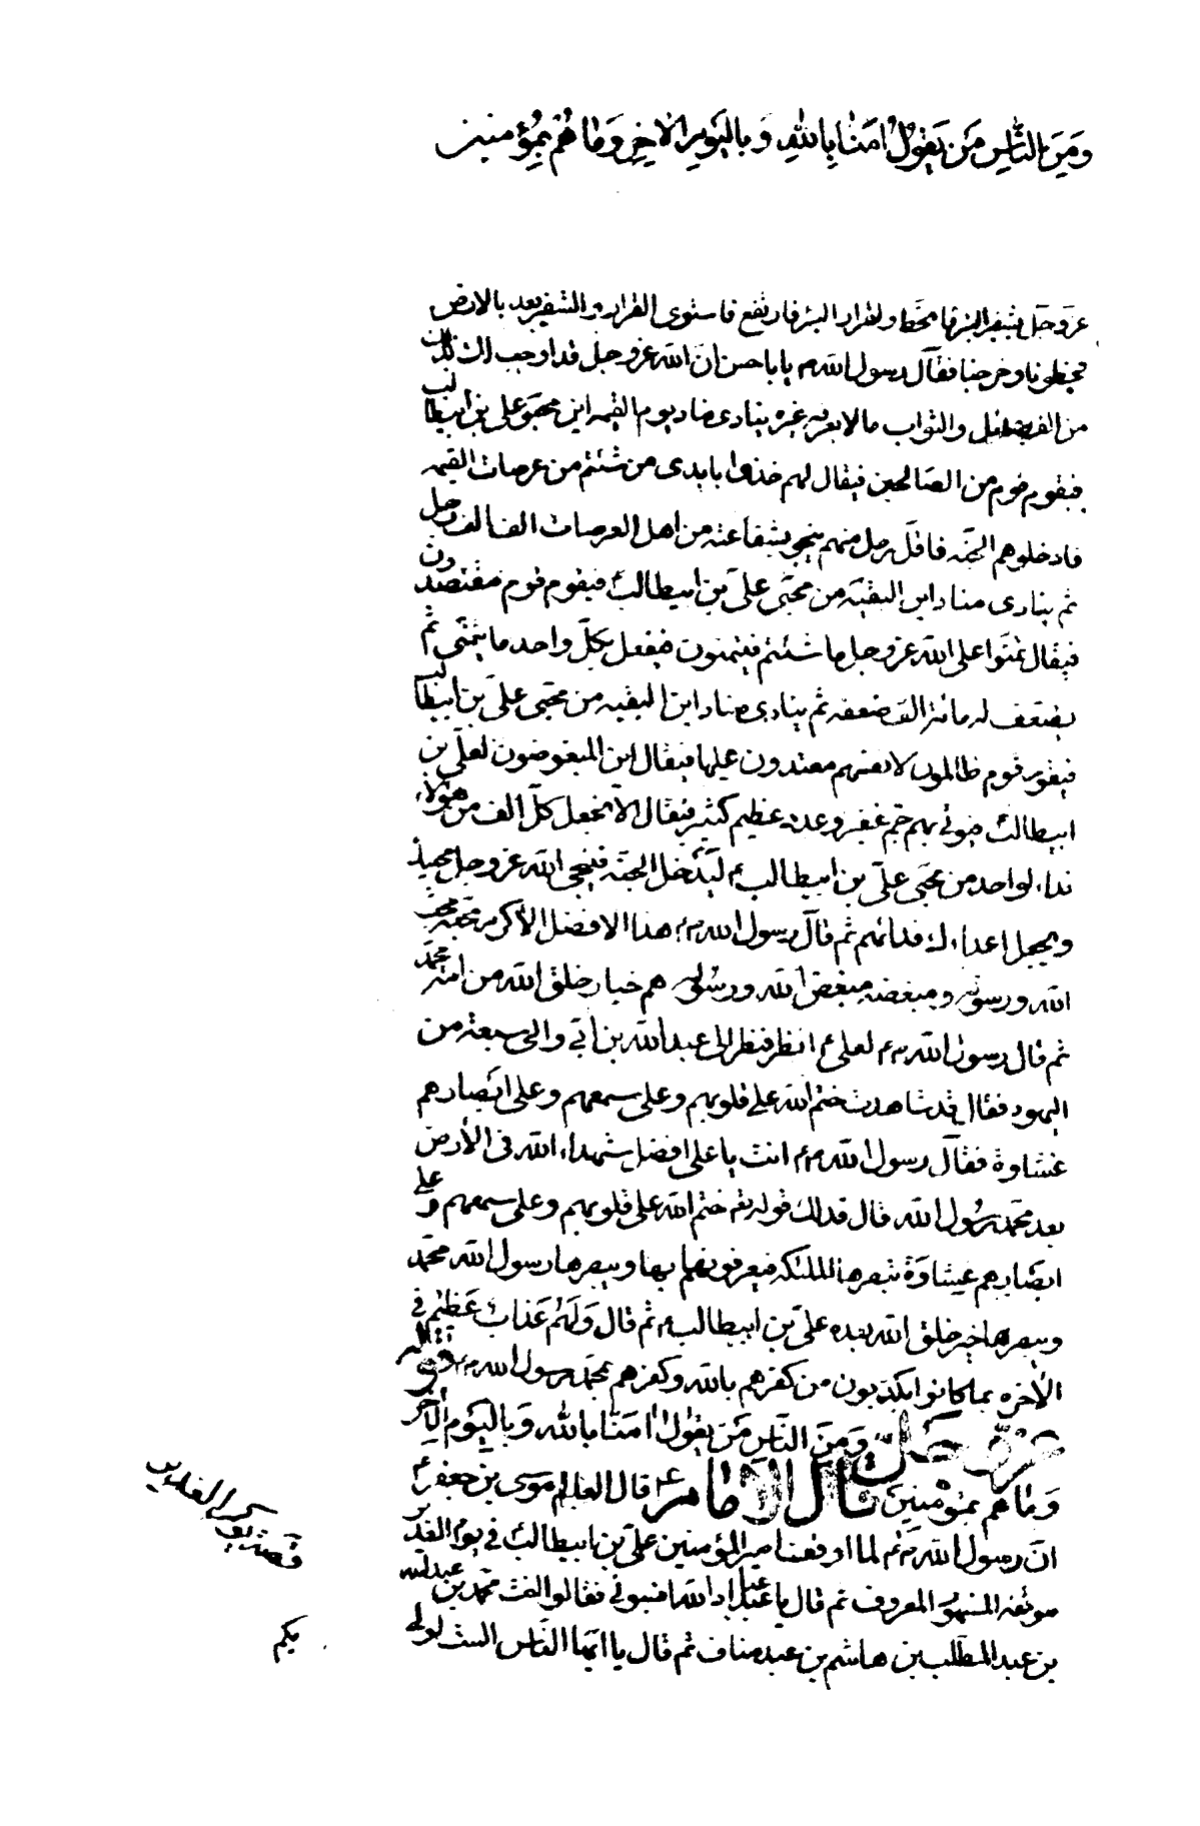 وَمِنَ النَّاسِ مَن يَقُولُ اٰمَنَّا بِاللهِ وَبِالْيَوْمِ الْاٰخِرِ وَمَا هُمْ بِمُؤْمِنِينَ
عزّ وجلّ شفير البئر فانحطا ولقرار البئر فارتفع فاستوى القرار والشفير بعد بالارض
فخطونا وخرجنا فقال رسول الله ص يا با حسن ان الله عزوجل قد اوجب لك بذلك
من الفضائل والثواب ما لا يعرفه غيره ينادى مناد يوم القيمه اين محبو على بن ابيطالب
فيقوم قوم من الصالحين فيقال لهم خذوا بايدى من شئتم من عرصات القيمه
فادخلوهم الجنه فاقلّ رجل منهم ينجو بشفاعته من اهل العرصات الف الف رجل
ثم ينادى مناد اين البقيّه من محبّى علىّ بن ابيطالب فيقوم قوم مقتصدون
فيقال تمنّوا على الله عزوجل ما شئتم فيتمنون فيفعل بكلّ واحد ما يتمنى ثم
يضعف له مائة الف ضعفه ثم ينادى مناد اين البقيه من محبّى علىّ بن ابيطالب
فيقوم قوم ظالمون لانفسهم معتدون عليها فيقال اين المبغوضون لعلىّ بن
ابيطالب فيؤتى بهم جمّ غفير وعدد عظيم كثير فيقال الا نجعل كلّ الف من هؤلاء
فداء لواحد من محبّى علىّ بن ابيطالب ع ليدخل الجنّه فينجى الله عزوجل محبيك
ويجعل اعداءك فدائهم ثم قال رسول الله ص هذا الافضل الاكرم محبّه محبّ
الله ورسوله ومبغضه مبغض الله ورسوله هم خيار خلق الله من امة محمّد
ثم قال رسول الله ص لعلى ع انظر فنظر الى عبدالله بن ابّى والى سبعة من
اليهود فقال قد شاهدت ختم الله على قلوبهم وعلى سمعهم وعلى ابصارهم
غشاوة فقال رسول الله ص انت يا على افضل شهداء الله فى الأرض
بعد محمّد رسول الله قال فذلك قوله تع ختم الله على قلوبهم وعلى سمعهم وعلى
ابصارهم غِشاوَةٌ تبصرها الملئكه فيعرفونهم بها ويبصرها رسول الله محمّد
ويبصرها خير خلق الله بعده علىّ بن ابيطالب ع ثم قال وَلَهُم عَذابٌ عَظيمٌ فى
الآخره بما كانوا يكذبون من كفرهم بالله وكفرهم بمحمّد رسول الله ص قوله
عزّ وجلّ وَمِنَ النّاسِ مَن يَقولُ اٰمنّا بالله وَبِاليَوم الآخر
وَمَا هم بمؤمنين قال الامام ع قال العالم موسى بن جعفر ع
انّ رسول الله ص لما اوقف امير المؤمنين علىّ بن ابيطالب فى يوم الغدير
موقفه المشهور المعروف ثم قال يا عباد الله انسبونى فقالوا انت محمّد بن عبدالله
بن عبد المطّلب بن هاشم بن عبد مناف ثم قال يا ايّها النّاس الست اولى
قصة يوم الغدير
بكم